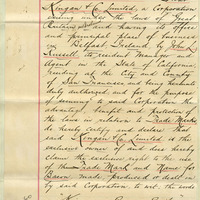 Kingan & Co Limited, a Corporation
existing under the laws of Great
Britain and having its office
and principal place of business
in Belfast Ireland, by John L
Russell its resident Member and
Agent in the State of California
residing at the City and County
of San Francisco and being thereunto
duly authorized and for the purpose
of securing to said Corporation the
advantage benefit and protection of
the laws in relation to Trade Marks
do hereby certify and declare that
said Kingan & Co Limited is the
exclusive owner of and does hereby
claim the exclusive right to the use
of the Trade Mark and Name for
Bacon made, produced or sold
by said Corporation to wit: the words